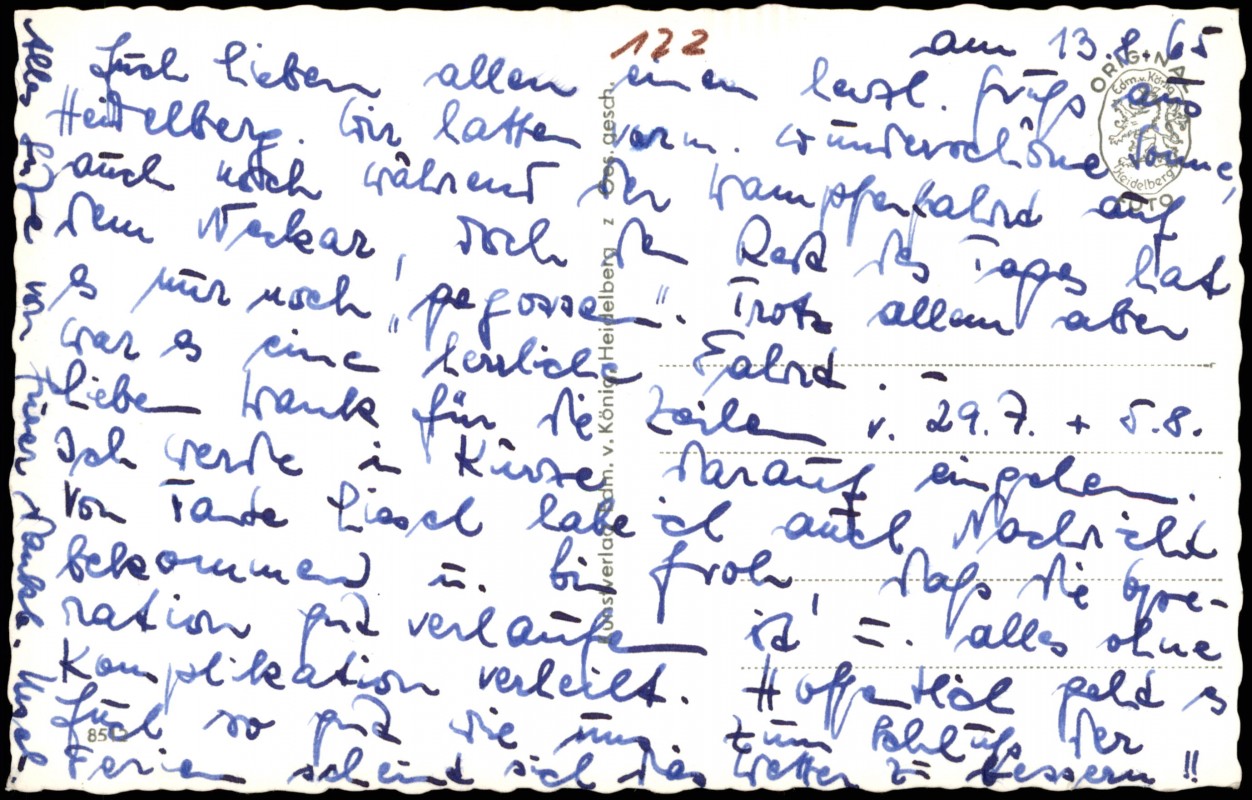 122
am 13.8.65
Euch lieben allen einen herzl. Gruß aus
Heidelberg. Wir hatten vorm. wunderschöne Sonne,
auch noch während der Dampferfahrt auf
dem Neckar, doch den Rest des Tages hat
es nur noch „gegossen". Trotz allem aber
war es eine herrliche Fahrt. –
Lieben Dank für die Zeilen v. 29.7. + 5.8.
Ich werde in Kürze darauf eingehen.
Von Tante Liesel habe ich auch Nachricht
bekommen u. bin froh, daß die Ope-
ration gut verlaufen ist u. alles ohne
Komplikation verheilt. Hoffentlich geht es
Euch so gut wie uns. Zum Schluß der
Ferien scheint sich das Wetter zu bessern!!
Alles Gute von Eurer dankb. Ursel.
ORIGINAL
Edm. v. König
Heidelberg
FOTO
Kunstverlag Edm. v. König, Heidelberg z Ges. gesch.
85